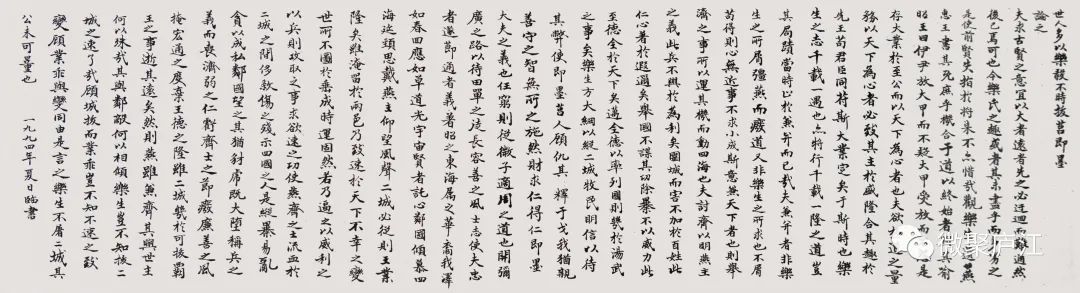 世人多以樂毅不時拔莒即墨
論之
夫求古賢之意宜以大者遠者先之必迂迴而難通然
後已焉可也今樂氏之趣或者其未盡乎而多劣之
是使前賢失指於將來不亦惜哉觀樂生遺燕
惠王書其殆庶乎機合乎道以終始者與其喻
昭王曰伊尹放大甲而不疑大甲受放而不怨是
存大業於至公而以天下為心者也夫欲極道之量
務以天下為心者必致其主於盛隆合其趣於
先王苟君臣同符斯大業定矣于斯時也樂
生之志千載一遇也亦將行千載一隆之道豈
其局蹟當時止於兼并而已哉夫兼并者非樂
生之所屑彊燕而廢道又非樂生之所求也不屑
苟得則心無近事不求小成斯意兼天下者也則舉
齊之事所以運其機而動四海也夫討齊以明燕主
之義此兵不興於為利矣圍城而害不加於百姓此
仁心著於遐邇矣舉國不謀其功除暴不以威力此
至德全於天下矣邁全德以率列國則幾於湯武
之事矣樂生方大綱以縱二城牧民明信以待
其弊使即墨莒人顧仇其釋于戈我猶親
善守之智無所之施然則求仁得仁即墨
大夫之義也任窮則從微子適周之道也開彌
廣之路以待田單之徒長容善之風士志使夫忠
者遂節通者義著昭之東海屬之華裔我澤
如春四應如草道光宇宙賢者託心鄰國傾慕四
海延頸思戴燕主仰望風聲二城必從則王業
隆矣雖淹留於兩邑乃致速於天下不幸之變
世所不圖於垂成時運固然若乃逼之以威利之
以兵則攻取之事求欲速之功使燕齊之士流血於
二城之閒侈殺傷之殘示四國之人是縱暴易亂
貪以成私鄰國望之其猶豺虎既大墮稱兵之
義而喪濟弱之仁虧齊士之節廢廉善之風
掩宏通之度棄王德之隆雖二城幾於可拔霸
王之事逝其遠矣然則燕雖兼齊其與世主
何以殊哉其與鄰敵何以相傾樂生豈不知拔二
城之速了哉顧城拔而業乖豈不知不速之致
變顧業乖與變同由是言之樂生不屠二城其
公未可量也 一九九四年夏日臨書
微聚庐江